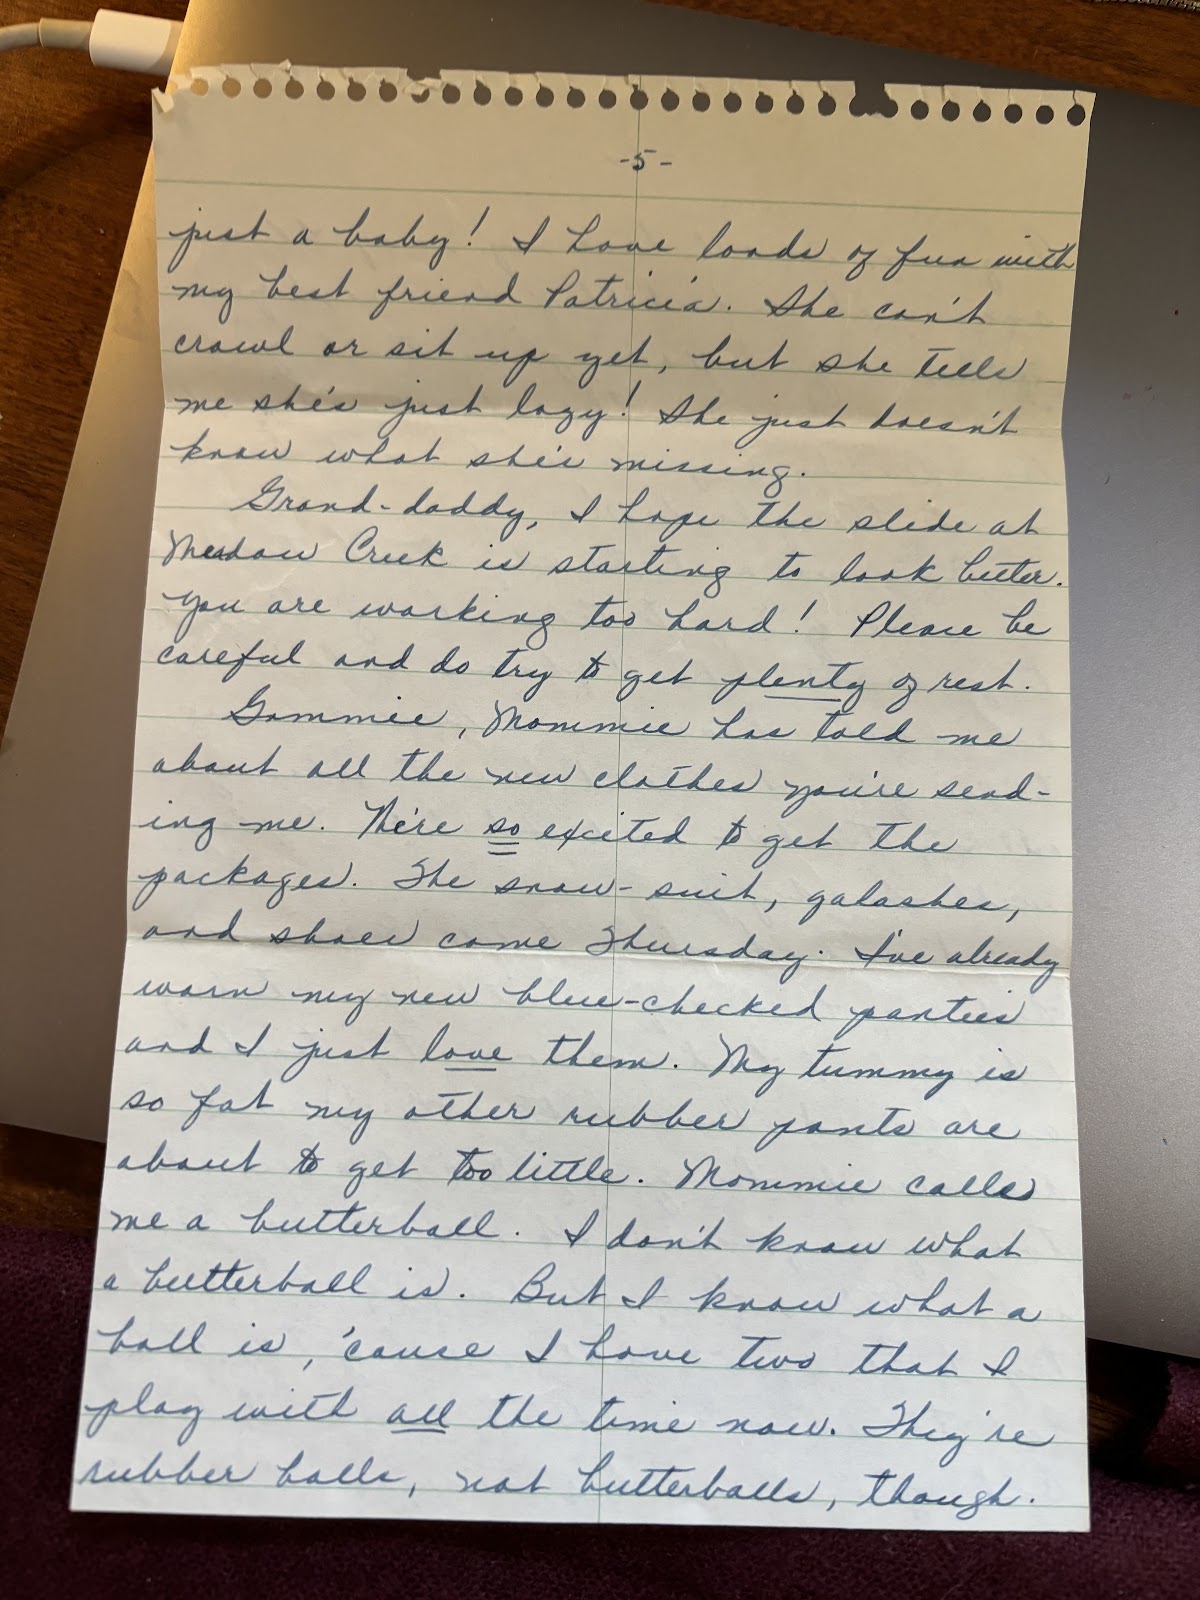 -5-
just a baby! I have loads of fun with
my best friend Patricia. She can't
crawl or sit up yet, but she tells
me she's just lazy! She just doesn't
know what she's missing.
Grand-daddy, I hope the slide at
Meadow Creek is starting to look better.
You are working too hard! Please be
careful and do try to get plenty of rest.
Gammie, Mommie has told me
about all the new clothes you're send-
ing me. We're so excited to get the
packages. The snow-suit, galashes,
and shoes came Thursday. I've already
worn my new blue-checked panties
and I just love them. My tummy is
so fat my other rubber pants are
about to get too little. Mommie calls
me a butterball. I don't know what
a butterball is. But I know what a
ball is, 'cause I have two that I
play with all the time now. They're
rubber balls, not butterballs, though.